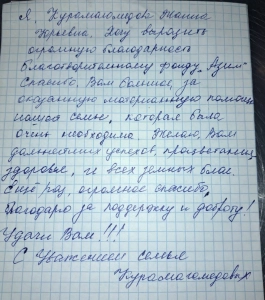 Я, Курамагомедова Жанна
Юрьевна. Хочу выразить
огромную благодарность
благотворительному фонду
Спасибо, Вам большое, за
оказанную материальную помощь
нашей семье, которая была
очень необходима. Желаю, Вам
дальнейших успехов, процветания,
здоровье, и всех земных благ.
Ещё раз, огромное спасибо,
благодарю за поддержку и доброту!
Удачи Вам!!!
С Уважением семья
Курамагомедовых